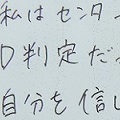 私はセンター
D判定だっ
自分を信じ